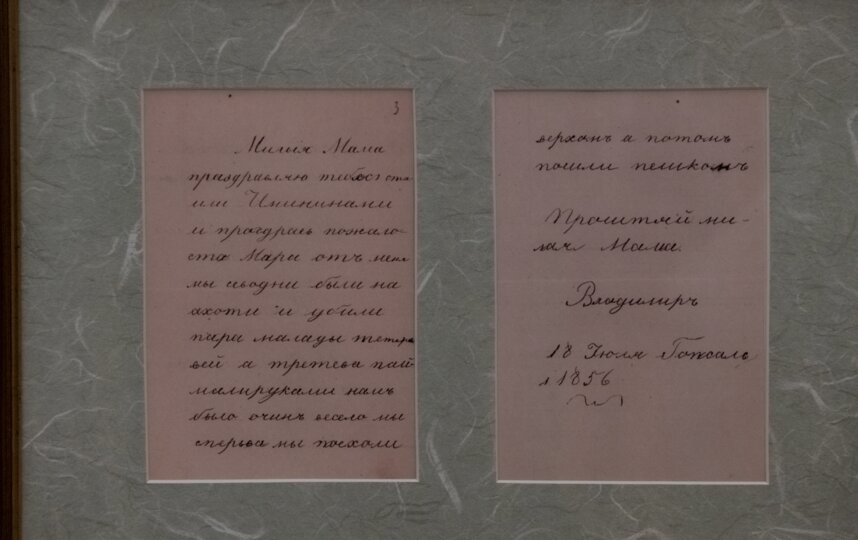 3
Милыя Мама
праздравляю тебя
или Имининами
и проздрась пожало-
ста Мара отъ меня
мы сьводни были на
ахоти и убили
пара малады тетере
вей а третева пай
малируками намъ
было очинъ весело мы
сперьва мы поехоли
верхомъ а потомъ
пошли пешкомъ
Прощтяй ми-
лая Мама.
Владимиръ
18 Июля
1856